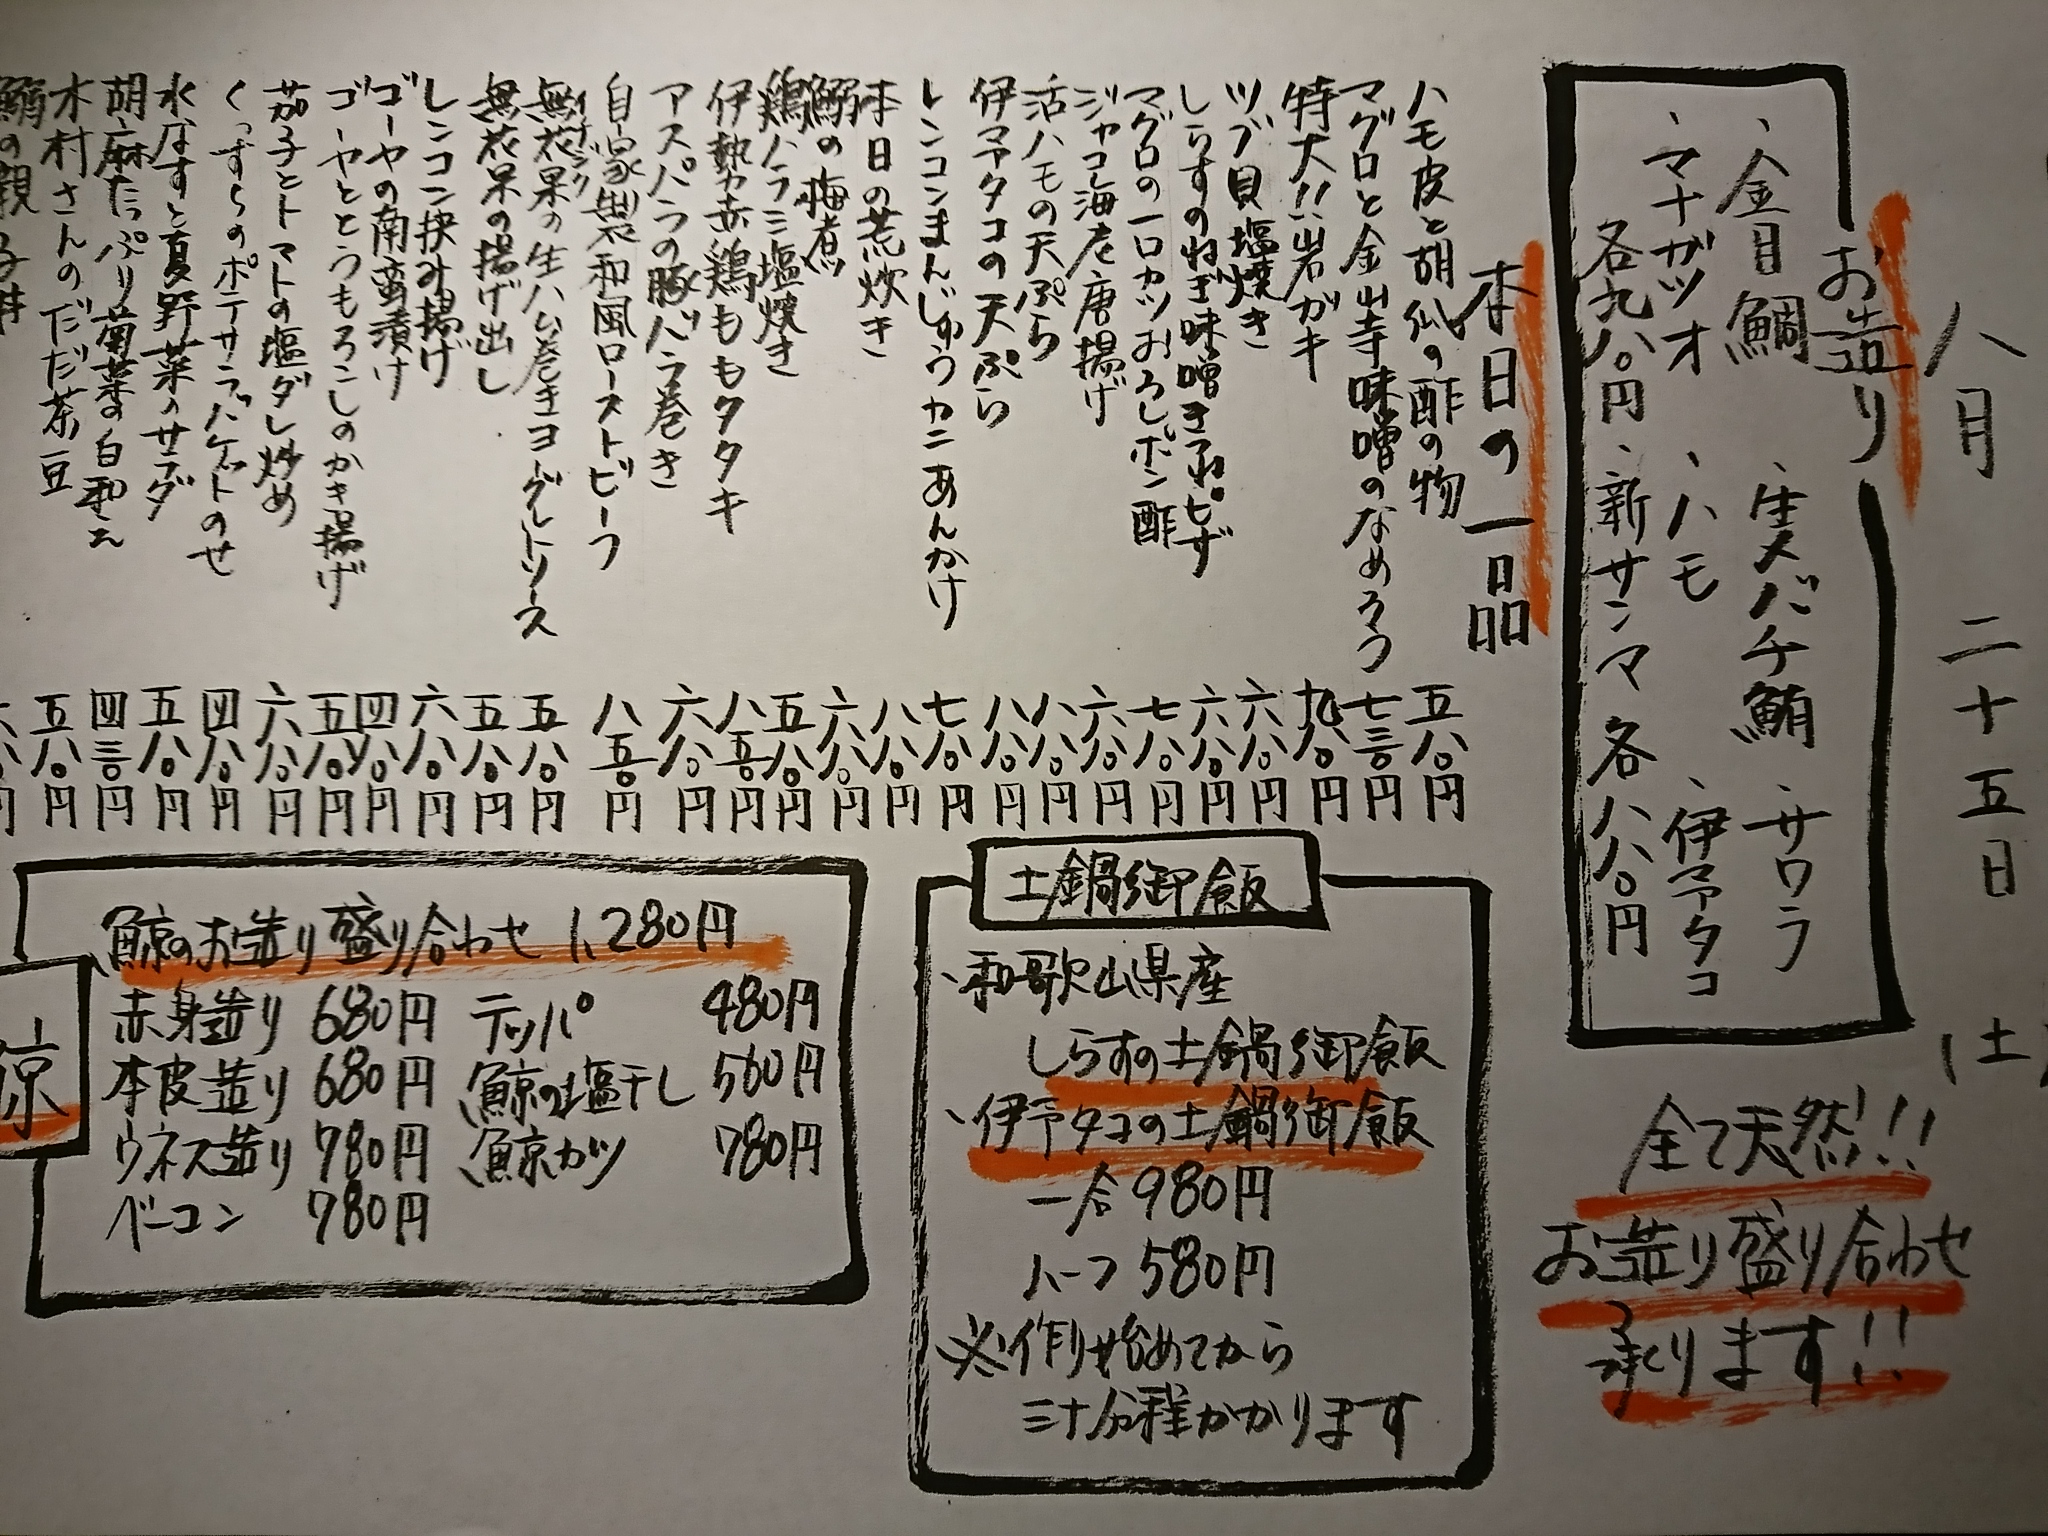 八月 二十五日 (土)
お造り
、金目鯛 、生メバチ鮪 、サワラ
、マナガツオ 、ハモ 、伊予タコ
各九八〇円 、新サンマ 各八八〇円
全て天然!!
お造り盛り合わせ
承ります!!
本日の一品
ハモ皮と胡瓜の酢の物 五八〇円
マグロと金山寺味噌のなめろう 七三〇円
特大!!岩ガキ 九八〇円
ツブ貝塩焼き 六八〇円
しらすのねぎ味噌きつねピザ 六八〇円
マグロの一口カツおろしポン酢 七八〇円
ジャコ海老唐揚げ 六八〇円
活ハモの天ぷら 八八〇円
伊予タコの天ぷら 八八〇円
レンコンまんじゅうカニあんかけ 七八〇円
本日の荒炊き 八八〇円
鰯の梅煮 六八〇円
鶏ハラミ塩焼き 五八〇円
伊勢赤鶏ももタタキ 八五〇円
アスパラの豚バラ巻き 六八〇円
自家製和風ローストビーフ 八五〇円
無花果の生ハム巻きヨーグルトソース 五八〇円
イチジク
無花果の揚げ出し 五八〇円
レンコン挟み揚げ 六八〇円
ゴーヤの南蛮漬け 四八〇円
ゴーヤととうもろこしのかき揚げ 五八〇円
茄子とトマトの塩ダレ炒め 六八〇円
くんずらのポテサラバケットのせ 四八〇円
水なすと夏野菜のサラダ 五八〇円
胡麻たっぷり菊菜の白和え 四三〇円
木村さんのだだ茶豆 五八〇円
土鍋御飯
、和歌山県産
しらすの土鍋御飯
、伊予タコの土鍋御飯
一合 980円
ハーフ 580円
※作り始めてから
三十分程かかります
鯨のお造り盛り合わせ 1,280円
赤身造り 680円 テッパ 480円
本皮造り 680円 鯨の塩干し 560円
ウネス造り 780円 鯨カツ 780円
ベーコン 780円